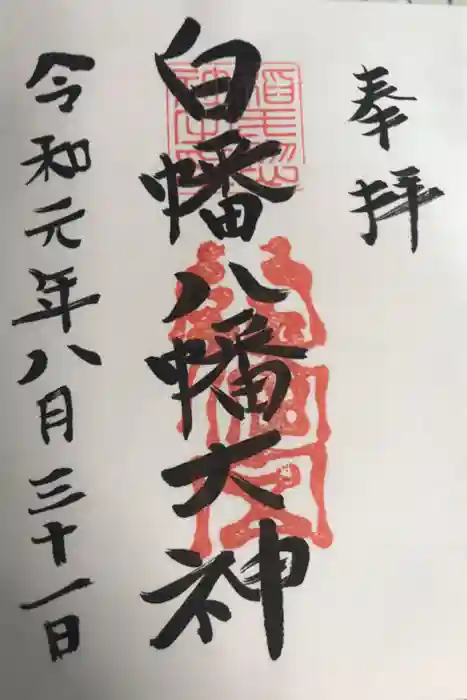 奉拝
白幡八幡大神
令和元年八月三十一日